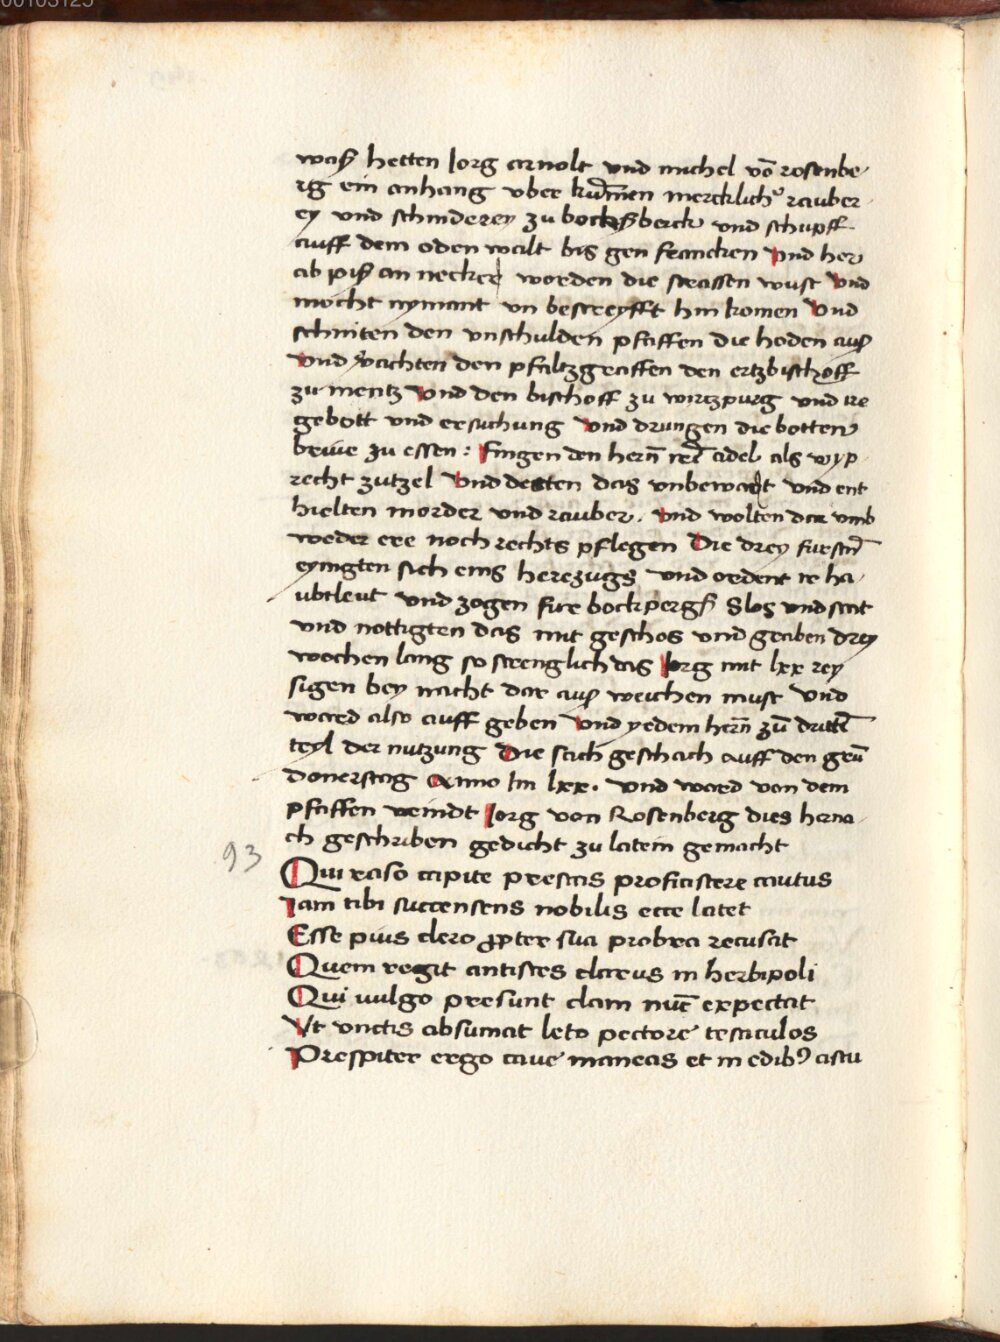 00103125
waß hetten Jorg arnolt vnd michel võ rosenbe
rg ein anhang vber kum̃en mercklich rauber
ey vnd schinderey zu bocksberck vnd schupff
auff dem oden walt bis gen francken Vnd her
ab piß an necker worden die strassen wust Vnd
mocht nymant vn bestreyfft hin komen Vnd
schniten den vnschulden pfaffen die hoden auß
Vnd den pfaltzgraffen den ertzbischoff
zu mentz Vnd den bischoff zu wirtzpurg vnd ire
gebott vnd ersuchung Vnd drungen die botten
brive zu essen : Fingen den hern̄ adel als wyp
recht zutzel Vnd desten das vnbewart vnd ent
hielten morder vnd rauber. Vnd wolten dar vmb
weder ere noch rechts pflegen Die drey furstn̄
eyingten sich eins herezugs vnd ordent ir ha
ubtleut vnd zogen fure bockperg Slos vnd stat
vnd nottigten das mit geschos vnd graben drey
wochen lang so strenglich das Jorg mit lxx rey
sigen bey nacht dar auß weichen must Vnd
ward also auff geben Vnd yedem hern̄ zū dritte
teyl der nutzung Die sach geschach auff den grū
donerstag Anno Im lxx. vnd ward von dem
pfaffen veindt Jorg von Rosenberg dies herna
ch geschriben gedicht zu latein gemacht
93
Qui raso capite prestas proficistere cautus
Iam tibi succensens nobilis ecce latet
Esse pius clero ꝓpter sua probra recusat
Quem regit antistes clarus in herbipoli
Qui uulgo presunt clam nūc expectat
Vt vnctis absumat leto pectore testiculos
Prespiter ergo caue maneas et in edibꝰ astu